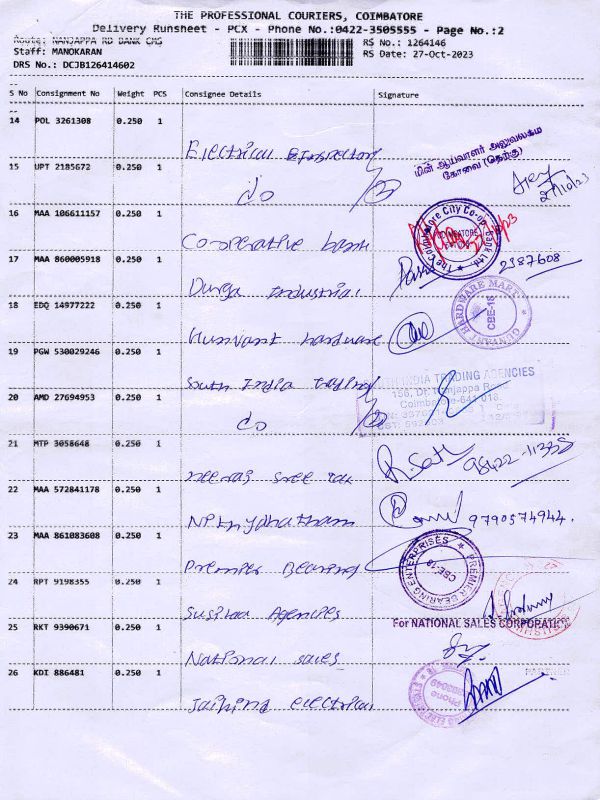 THE PROFESSIONAL COURIERS, COIMBATORE
Delivery Runsheet - PCX - Phone No.:0422-3505555 - Page No.:2
Route: NANJAPPA RD BANK CMS
RS No.: 1264146
Staff: MANOKARAN
RS Date: 27-Oct-2023
DRS No.: DCJB126414602
S No Consignment No Weight PCS Consignee Details Signature
14 POL 3261308 0.250 1 Electrical Inspector
மின் ஆய்வாளர் அலுவலகம்
கோவை (தெற்கு)
15 UPT 2185672 0.250 1 do
27/10/23
16 MAA 106611157 0.250 1 Cooperative bank
The Coimbatore City Co-op Bank Ltd.
17 MAA 860005918 0.250 1 Durga Industrial
2387608
18 EDQ 14977222 0.250 1 hardware
HARDWARE MART
CBE-18
19 PGW 530029246 0.250 1 South India Trading
INDIA TRADING AGENCIES
156, Dr. Nanjappa Road
Coimbatore-641 018.
20 AMD 27694953 0.250 1 do
21 MTP 3058648 0.250 1 sree
R. Sath 98422-11338
22 MAA 572841178 0.250 1
9790574944.
23 MAA 861083608 0.250 1 Premier Bearing
PREMIER BEARING ENTERPRISES
CBE-18
24 RPT 9198355 0.250 1 Agencies
25 RKT 9390671 0.250 1 National sales
For NATIONAL SALES CORPORATION
PARTNER
26 KDI 886481 0.250 1 Jaihind electrical
Phone